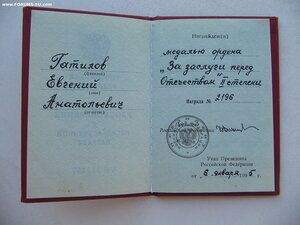 www.FORUMS-SU.com
Гатиялов
(фамилия)
Евгений
(имя)
Анатольевич
(отчество)
Награжден(а)
медалью ордена
„За заслуги перед
Отечеством" II степени
Награда № 2196
Российской Федерации
Указ Президента
Российской Федерации
от 6 января 1995 г.